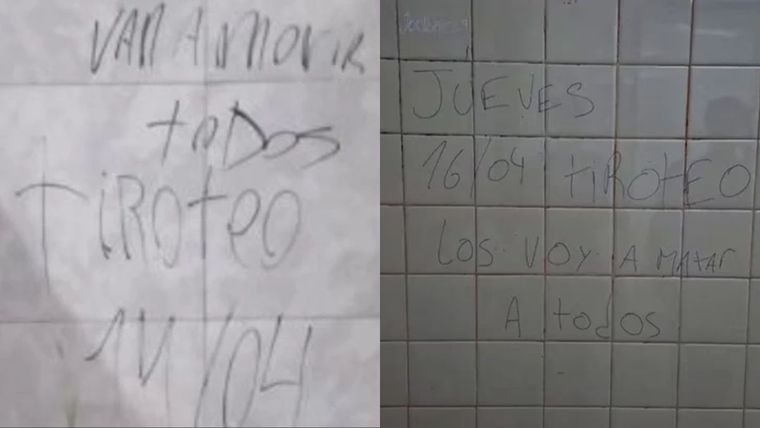 VAN A MORIR
toDOS
tiRoteo
14/04
JUEVES
16/04 tiROtEO
LOS VOY A MAtAr
A todos